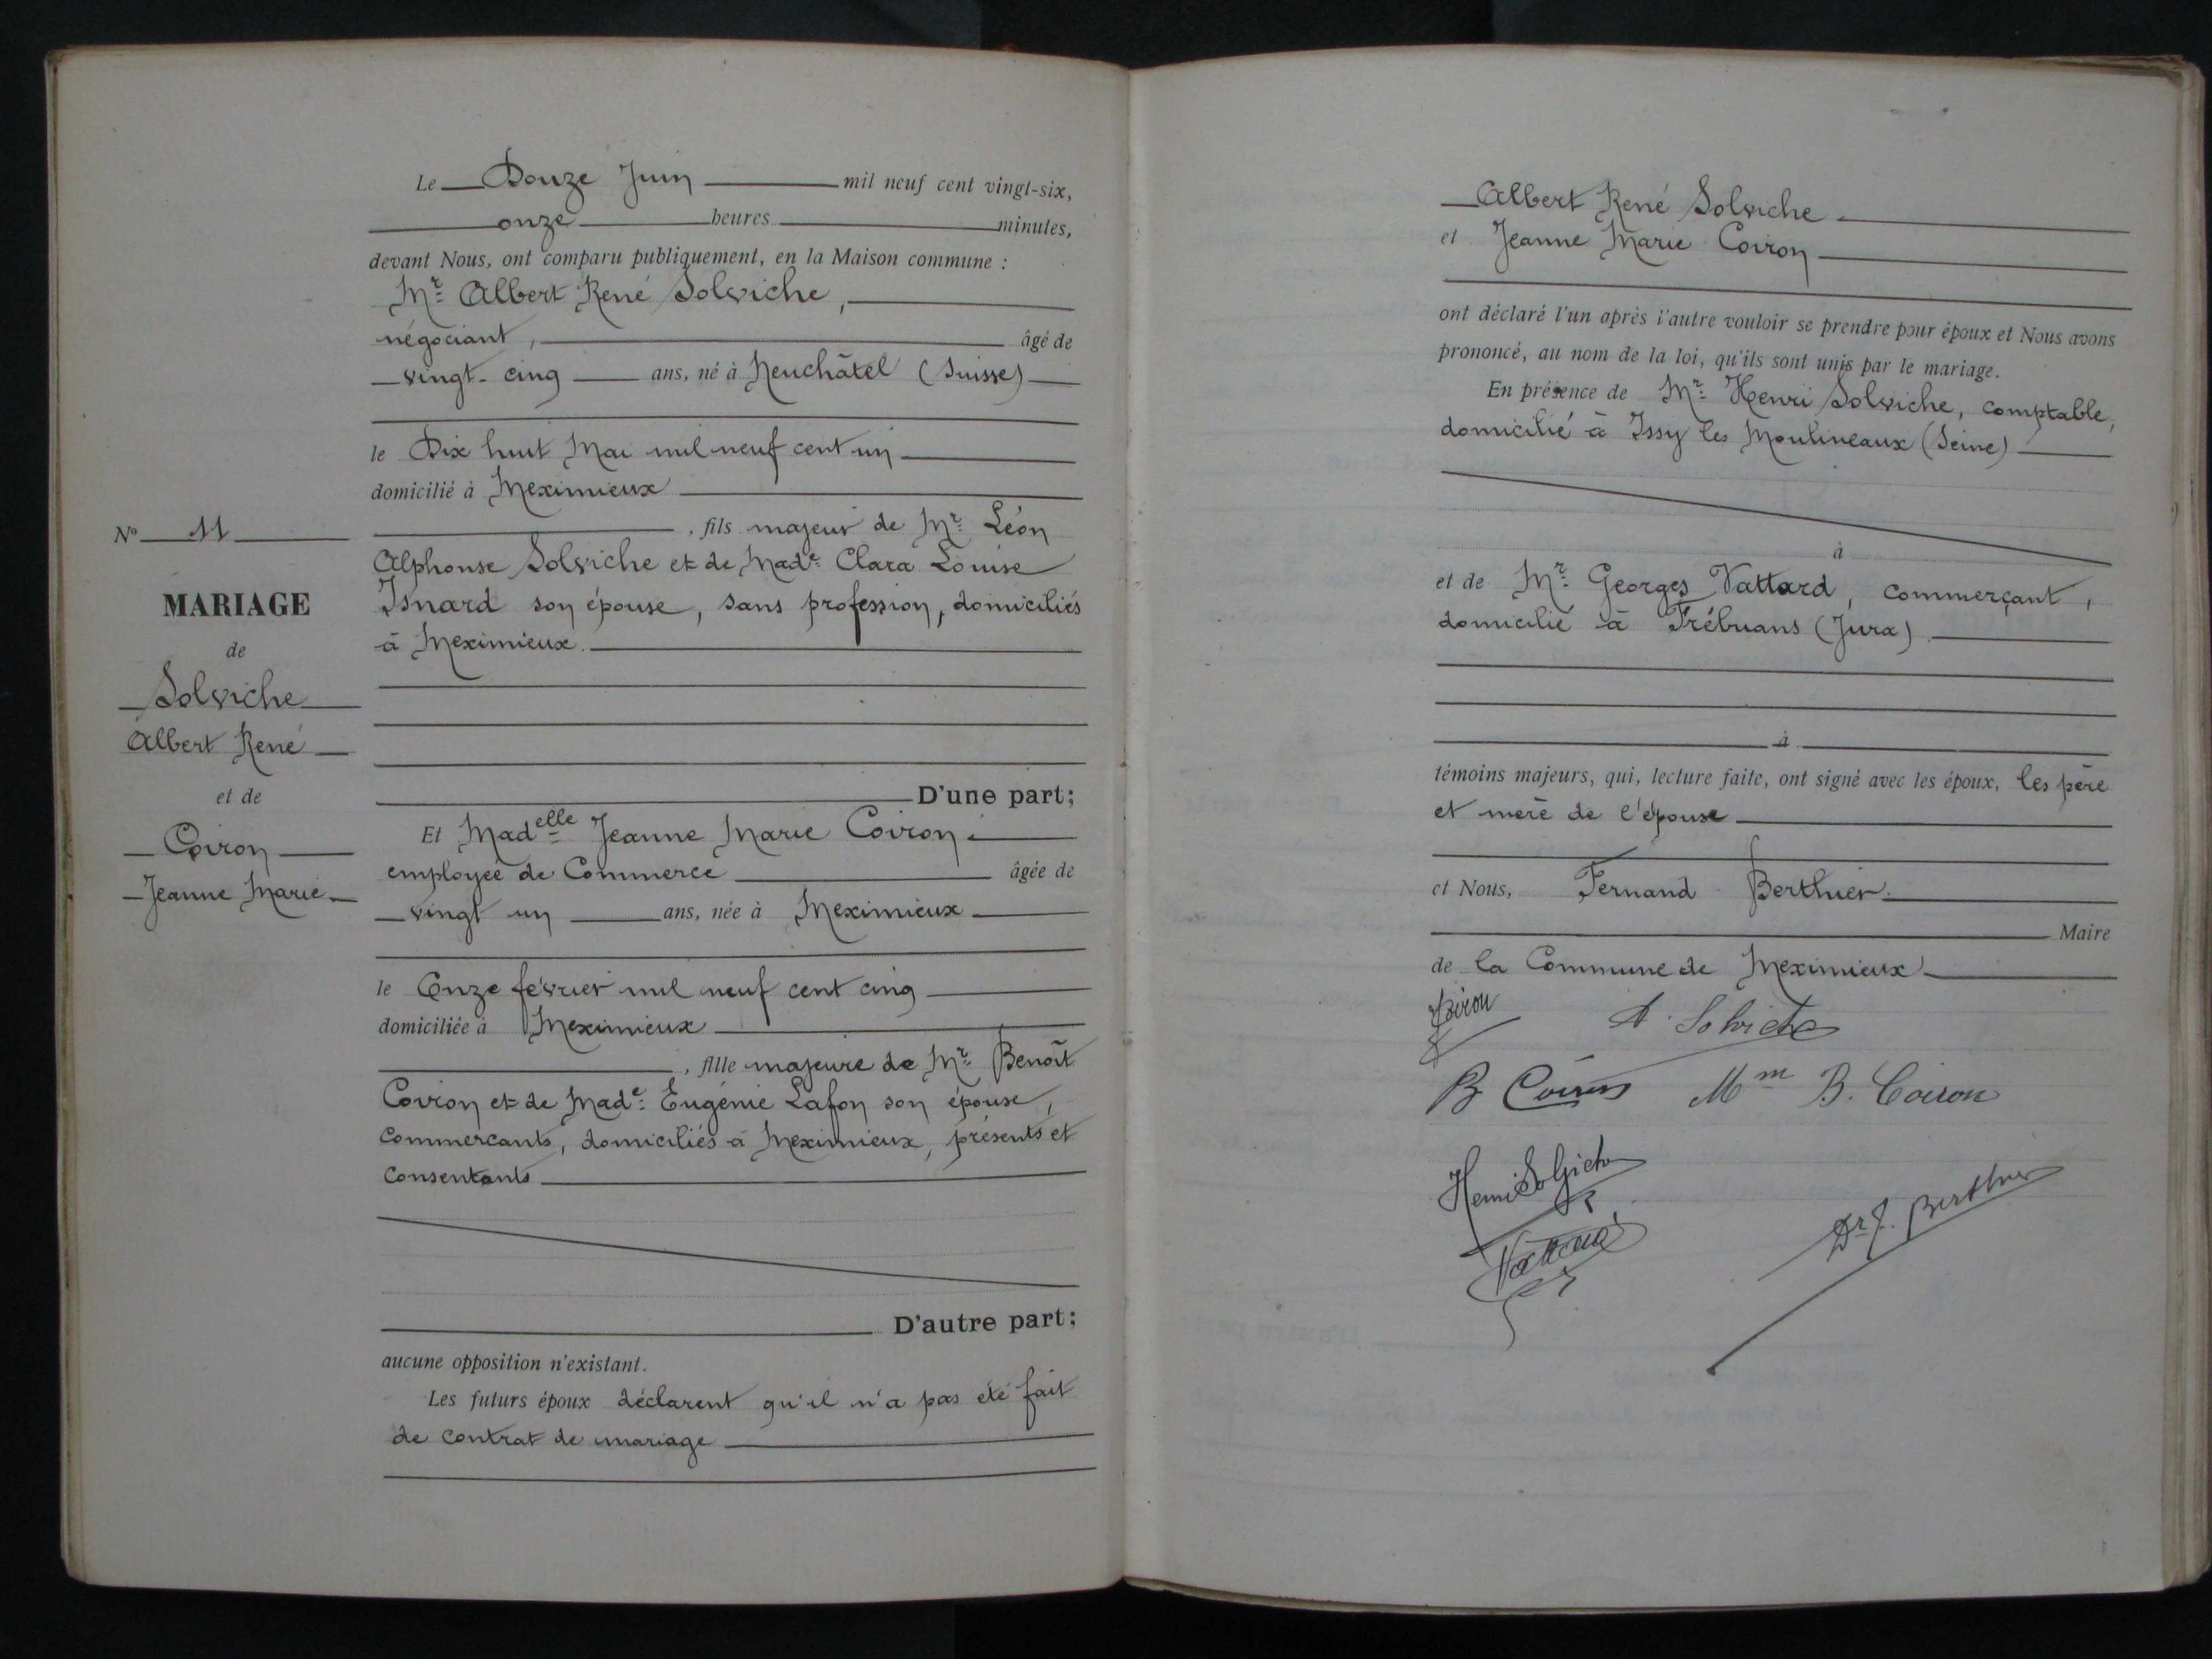 Le Douze Juin mil neuf cent vingt-six,
onze heures minutes,
devant Nous, ont comparu publiquement, en la Maison commune :
Mr Albert René Solviche,
négociant, âgé de
vingt-cinq ans, né à Neuchâtel (Suisse)
le Dix huit Mai mil neuf cent un
domicilié à Meximieux
, fils majeur de Mr Léon
Alphonse Solviche et de Made Clara Louise
Isnard son épouse, sans profession, domiciliés
à Meximieux.
N° 11
MARIAGE
de
Solviche
Albert René
et de
Coiron
Jeanne Marie
D'une part;
Et Madelle Jeanne Marie Coiron
employée de Commerce âgée de
vingt un ans, née à Meximieux
le Onze février mil neuf cent cinq
domiciliée à Meximieux
, fille majeure de Mr Benoît
Coiron et de Made Eugénie Lafon son épouse,
commercants, domiciliés à Meximieux, présents et
consentants
D'autre part;
aucune opposition n'existant.
Les futurs époux déclarent qu'il n'a pas été fait
de contrat de mariage
Albert René Solviche
et Jeanne Marie Coiron
ont déclaré l'un après l'autre vouloir se prendre pour époux et Nous avons
prononcé, au nom de la loi, qu'ils sont unis par le mariage.
En présence de Mr Henri Solviche, comptable,
domicilié à Issy les Moulineaux (Seine)
à
et de Mr Georges Vattard, commerçant,
domicilié à Trébuans (Jura)
à
témoins majeurs, qui, lecture faite, ont signé avec les époux, les père
et mère de l'épouse
et Nous, Fernand Berthier
Maire
de la Commune de Meximieux
A. Solviche
B Coiron Mm B. Coiron
Henri Solviche
Dr F. Berthier